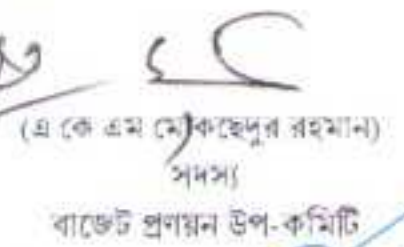 (এ কে এম মোকছেদুর রহমান)
সদস্য
বাজেট প্রণয়ন উপ-কমিটি